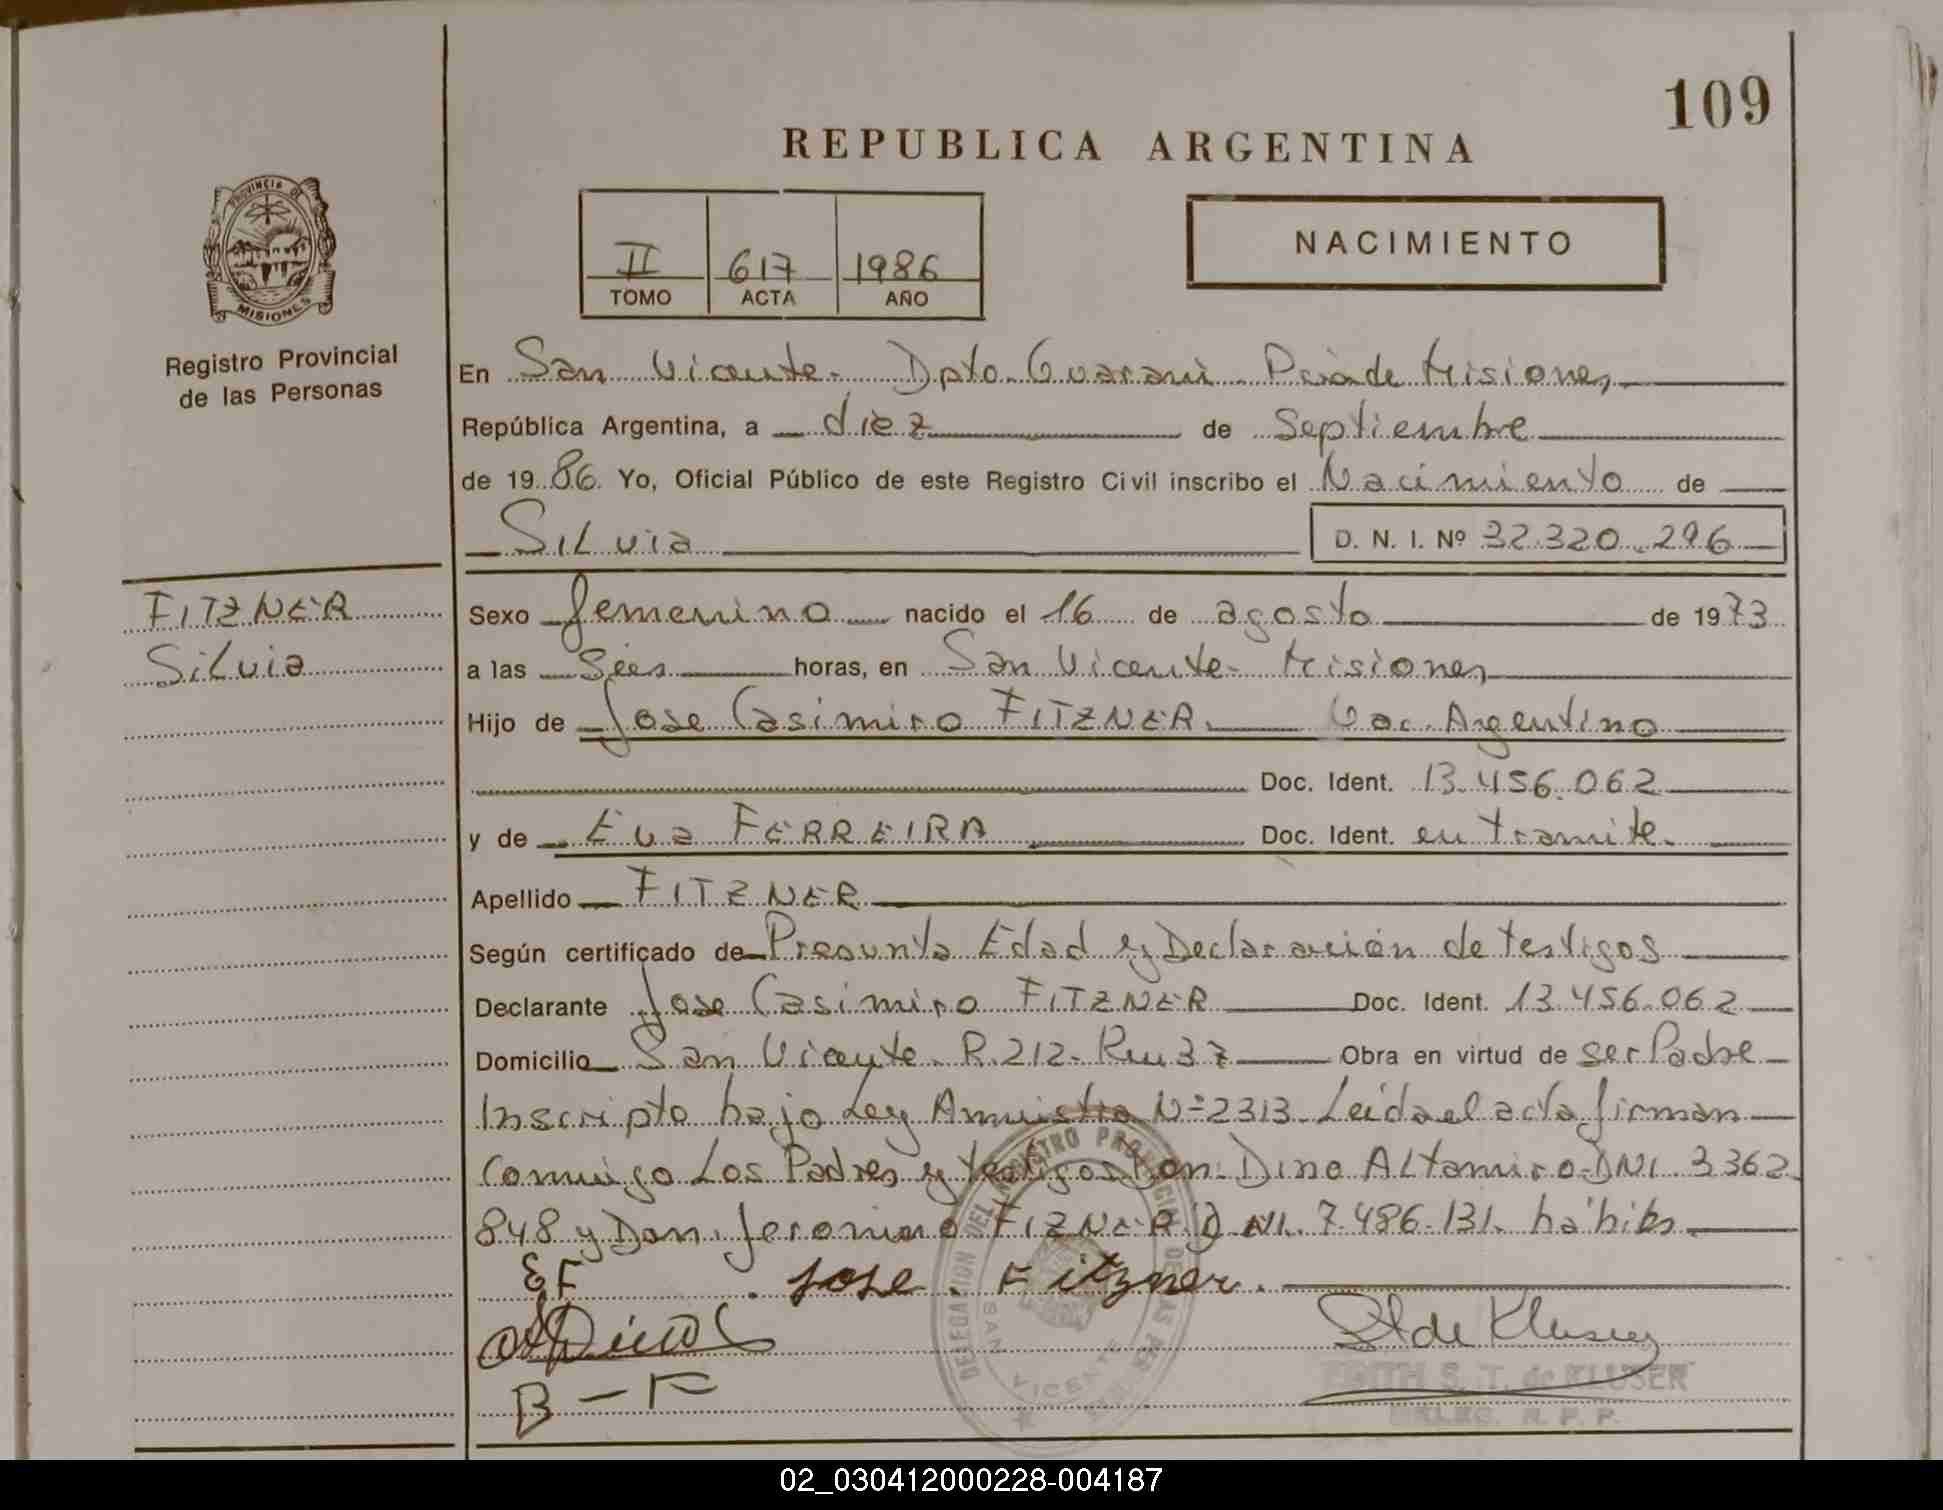 109
REPUBLICA ARGENTINA
PROVINCIA DE
MISIONES
Registro Provincial
de las Personas
II 617 1986
TOMO ACTA AÑO
NACIMIENTO
En San Vicente. Dpto. Guarani Pcia de Misiones
República Argentina, a diez de Septiembre
de 1986. Yo, Oficial Público de este Registro Civil inscribo el Nacimiento de
SiLvia D. N. I. Nº 32.320.296
FITZNER
SiLvia
Sexo femenino nacido el 16 de agosto de 1973
a las Seis horas, en San Vicente - Misiones
Hijo de Jose Casimiro FITZNER. Nac. Argentino
Doc. Ident. 13.456.062
y de Eva FERREIRA Doc. Ident. en tramite.
Apellido FITZNER
Según certificado de Presunta Edad y Declaración de testigos
Declarante Jose Casimiro FITZNER Doc. Ident. 13.456.062
Domicilio San Vicente. R.212. Km 37 Obra en virtud de ser Padre
Inscripto bajo Ley Amnistia Nº 2313. Leida el acta firman
Conmigo Los Padres y testigos Don. Dino ALtamiro. DNI. 3362
848 y Don. Jeronimo FIZNER. DNI. 7.486.131. hábiles.
EF . Jose . Fitzner.
B - F
DELEGACION DEL REGISTRO PROVINCIAL DE LAS PER
SAN VICENTE
EDITH S. T. de KLUSER
DELEG. R. P. P.
02_030412000228-004187